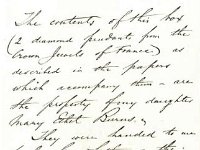 The contents of this box
(2 diamond pendants from the
Crown Jewels of France) as
described in the papers
which accompany them - are
the property of my daughter
Mary Ethel Burns.
They were handed to me